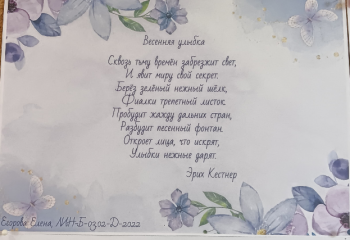 Весенняя улыбка
Сквозь тьму времён забрезжит свет,
И явит миру свой секрет.
Берёз зелёный нежный шёлк,
Фиалки трепетный листок
Пробудит жажду дальних стран,
Разбудит песенный фонтан.
Откроет лица, что искрят,
Улыбки нежные дарят.
Эрих Кестнер
Егорова Елена, ЛИН-Б-0302-Д-2022